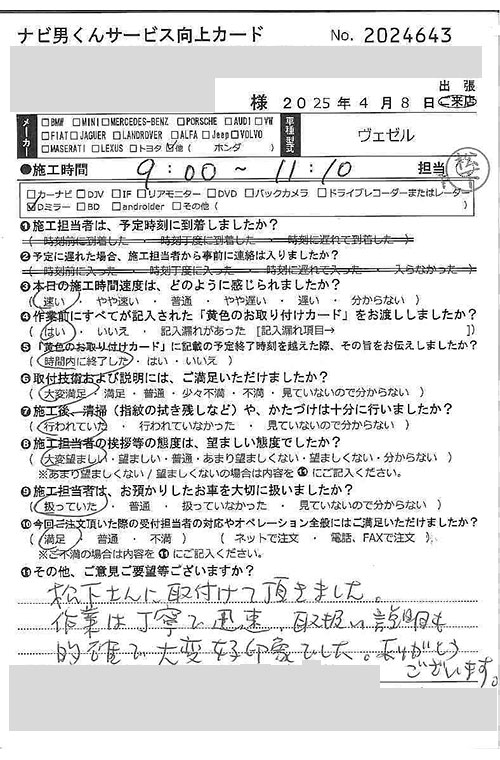 ナビ男くんサービス向上カード No. 2024643
様 2025年4月8日 出張 ご来店
メーカー □BMW □MINI □MERCEDES-BENZ □PORSCHE □AUDI □VW
□FIAT □JAGUER □LANDROVER □ALFA □Jeep □VOLVO
□MASERATI □LEXUS □トヨタ ☑他 ( ホンダ )
車種型式 ヴェゼル
●施工時間 9:00~11:10 担当 松
□カーナビ □DJV □IF □リアモニター □DVD □バックカメラ □ドライブレコーダーまたはレーダー
☑Dミラー □BD □androider □その他 ( )
❶施工担当者は、予定時刻に到着しましたか?
( 時刻前に到着した ・ 時刻丁度に到着した ・ 時刻に遅れて到着した )
❷予定に遅れた場合、施工担当者から事前に連絡は入りましたか?
( 時刻前に入った ・ 時刻丁度に入った ・ 時刻に遅れて入った ・ 入らなかった )
❸本日の施工時間速度は、どのように感じられましたか?
( 速い ・ やや速い ・ 普通 ・ やや遅い ・ 遅い ・ 分からない )
❹作業前にすべてが記入された「黄色のお取り付けカード」をお渡ししましたか?
( はい ・ いいえ ・ 記入漏れがあった [記入漏れ項目→ ] )
❺「黄色のお取り付けカード」に記載の予定終了時刻を越えた際、その旨をお伝えしましたか?
( 時間内に終了した ・ はい ・ いいえ )
❻取付技術および説明には、ご満足いただけましたか?
( 大変満足 ・ 満足 ・ 普通 ・ 少々不満 ・ 不満 ・ 見ていないので分からない )
❼施工後、清掃(指紋の拭き残しなど)や、かたづけは十分に行いましたか?
( 行われていた ・ 行われていなかった ・ 見ていないので分からない )
❽施工担当者の挨拶等の態度は、望ましい態度でしたか?
( 大変望ましい ・ 望ましい ・ 普通 ・ あまり望ましくない ・ 望ましくない ・ 分からない )
※あまり望ましくない/望ましくないの場合は内容を⓫にご記入ください。
❾施工担当者は、お預かりしたお車を大切に扱いましたか?
( 扱っていた ・ 普通 ・ 扱っていなかった ・ 見ていないので分からない )
❿今回ご注文頂いた際の受付担当者の対応やオペレーション全般にはご満足いただけましたか?
( 満足 ・ 普通 ・ 不満 ) ( ネットで注文 ・ 電話、FAXで注文 )
※ご不満の場合は内容を⓫にご記入ください。
⓫その他、ご意見ご要望等ございますか?
松下さんに取付けて頂きました。
作業は丁寧で迅速、取扱い説明も
的確で大変好印象でした。ありがとう
ございます。